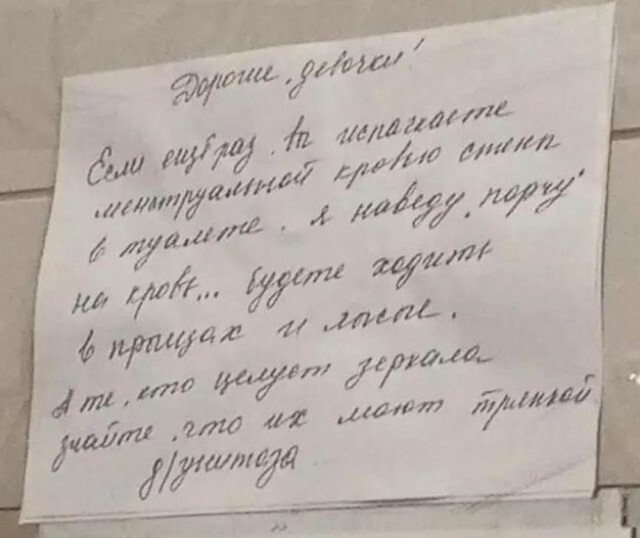 Дорогие, девочки!
Если ещё раз, вы испачкаете
менструальной кровью стены
в туалете, я наведу „порчу"
на кровь... будете ходить
в прыщах и лысые.
А те, кто целует зеркала
знайте, что их моют тряпкой
д/унитаза